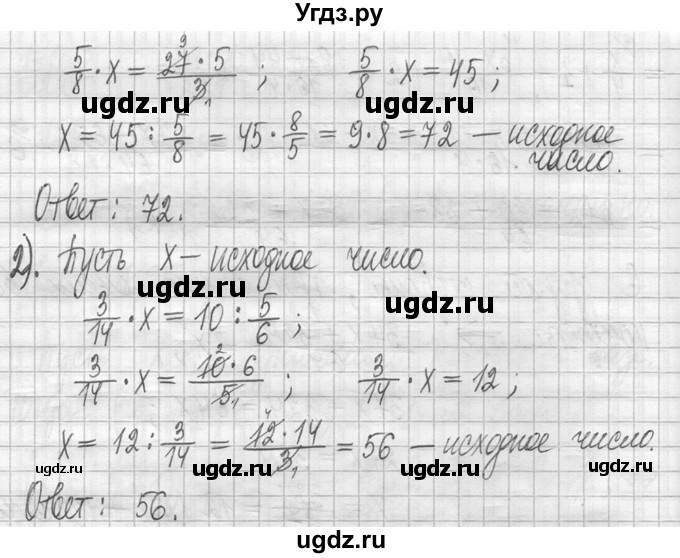 Угдз.ру
5/8 · x = 27 · 5 / 3 ; 5/8 · x = 45 ;
9 1
ugdz.ru ugdz.ru
x = 45 : 5/8 = 45 · 8/5 = 9 · 8 = 72 – исходное
число.
Ответ: 72.
ugdz.ru
2). Пусть x – исходное число.
ugdz.ru
3/14 · x = 10 : 5/6 ;
3/14 · x = 10 · 6 / 5 ; 3/14 · x = 12 ;
2 1
ugdz.ru ugdz.ru
x = 12 : 3/14 = 12 · 14 / 3 = 56 – исходное число.
4 1
ugdz.ru ugdz.ru ugdz.ru
Ответ: 56.
ugdz.ru